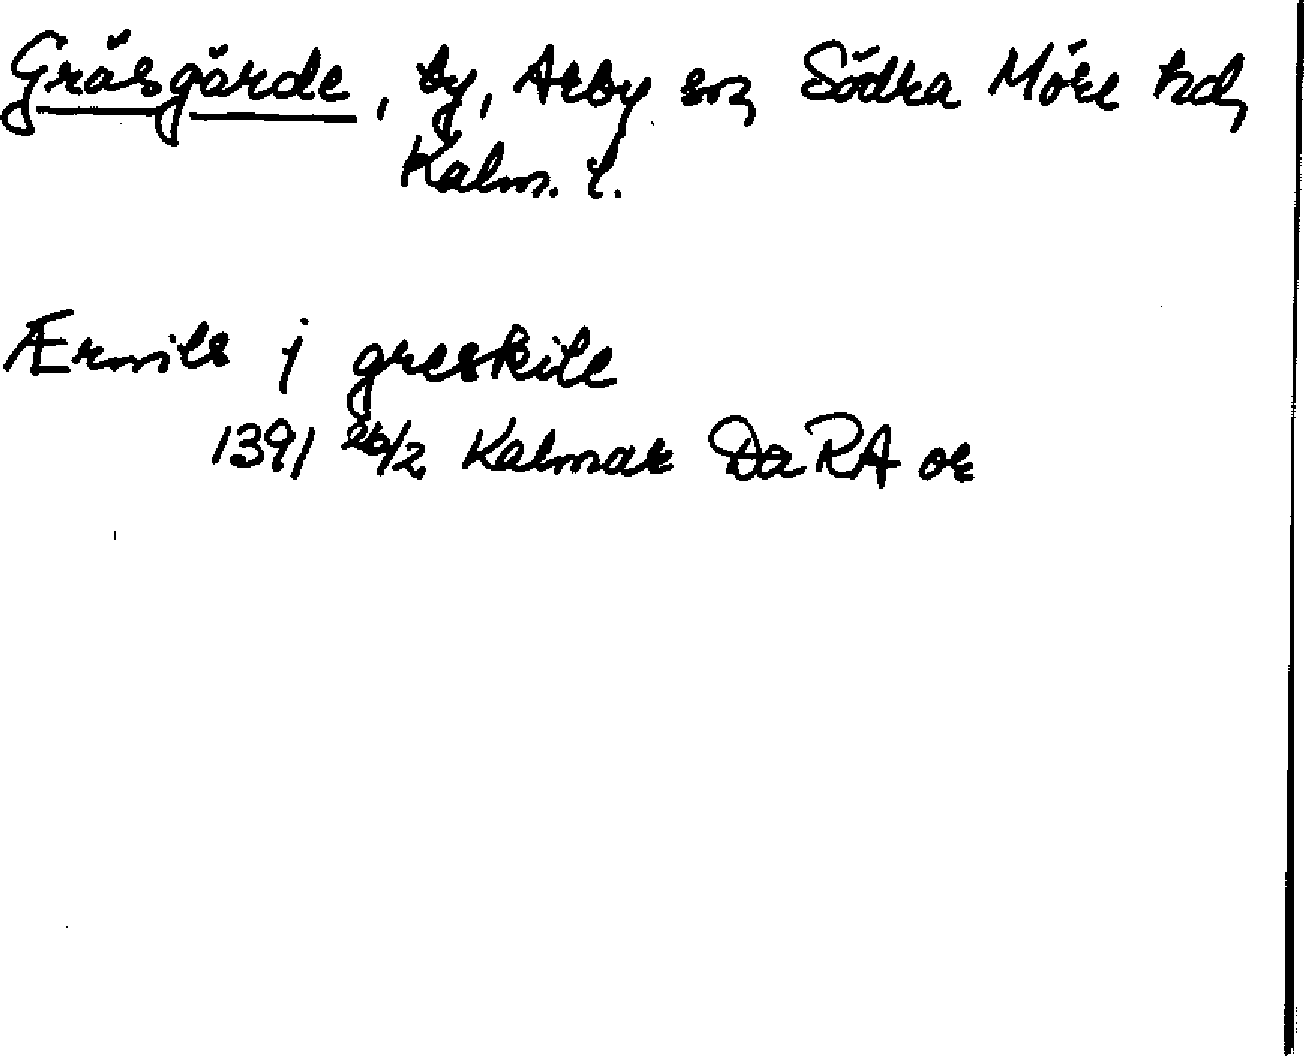 Gräsgärde, by, Arby sn, Södra Möre hd,
Kalm. l.
Ærnils j greskile
1391 26/2 Kalmar Da RA or